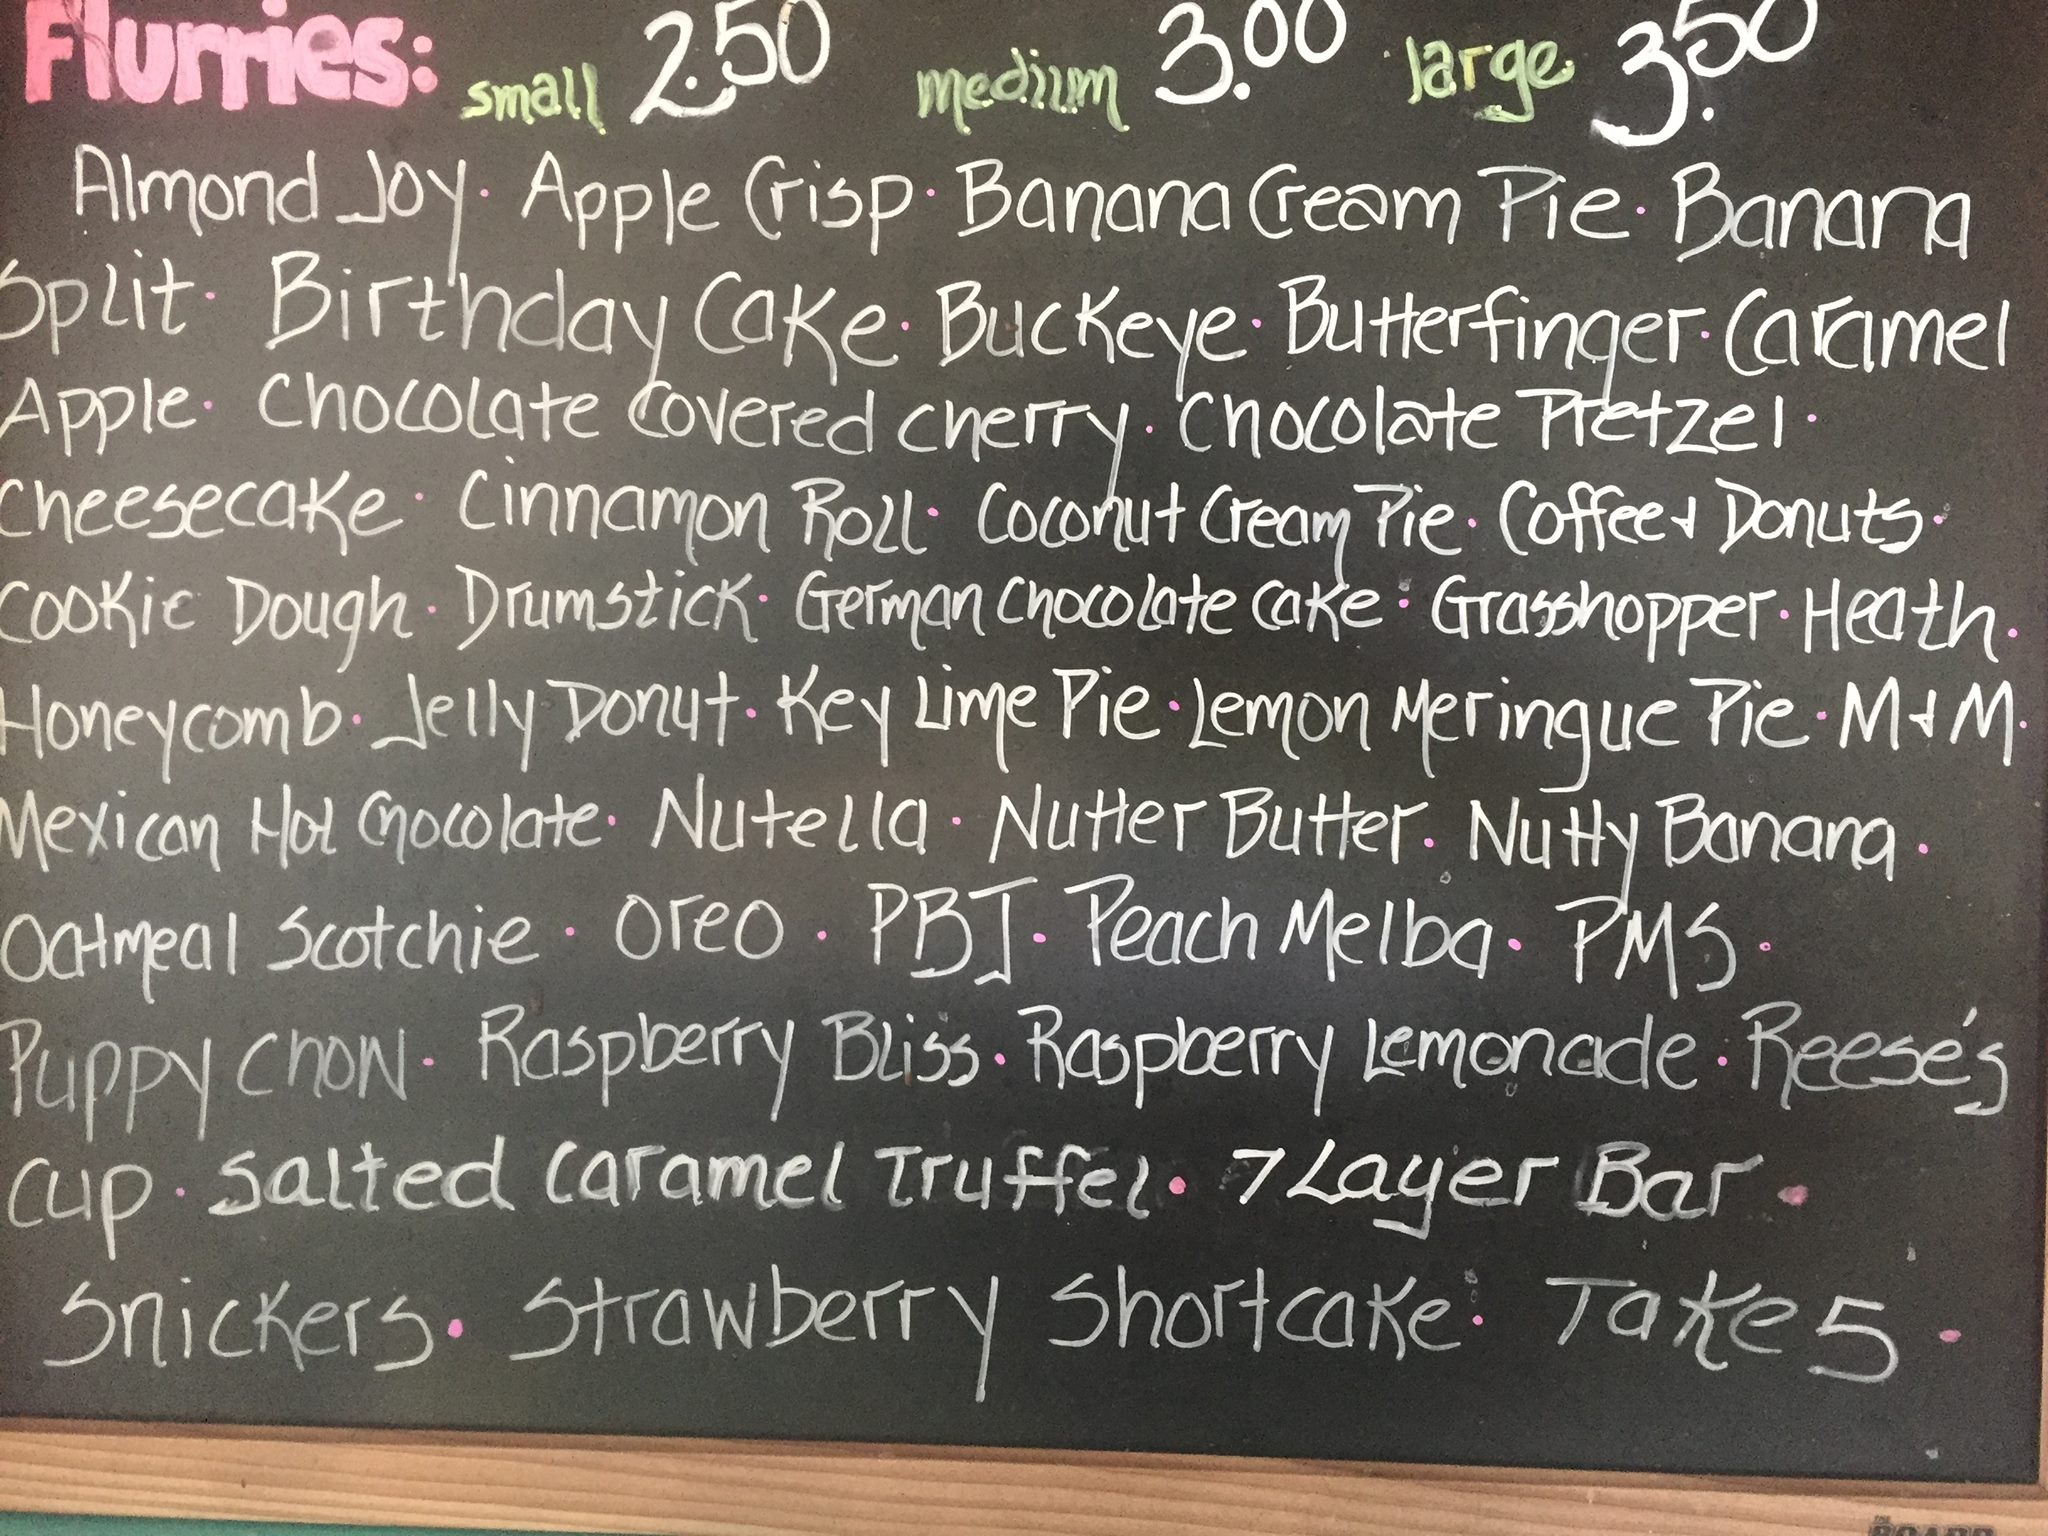 Flurries: small 2.50 medium 3.00 large 3.50
Almond Joy · Apple Crisp · Banana Cream Pie · Banana
Split · Birthday Cake · Buckeye · Butterfinger · Caramel
Apple · Chocolate Covered Cherry · Chocolate Pretzel ·
Cheesecake · Cinnamon Roll · Coconut Cream Pie · Coffee & Donuts ·
Cookie Dough · Drumstick · German Chocolate Cake · Grasshopper · Heath ·
Honeycomb · Jelly Donut · Key Lime Pie · Lemon Meringue Pie · M & M ·
Mexican Hot Chocolate · Nutella · Nutter Butter · Nutty Banana ·
Oatmeal Scotchie · Oreo · PBJ · Peach Melba · PMS ·
Puppy Chow · Raspberry Bliss · Raspberry Lemonade · Reese's
Cup · Salted Caramel Truffel · 7 Layer Bar ·
Snickers · Strawberry Shortcake · Take 5 ·